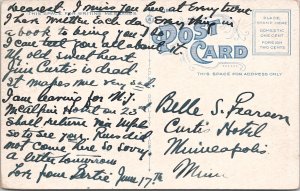 Dearest. I miss you here at every turn
I have written each day. Everything in
a book to bring you & so
I can tell you all about it.
My old sweet heart
Jim Curtis is dead.
It makes me very sad.
I am leaving for N.J.
McAlpin Hotel on 23rd
Shall return via Lake
so to see you. Rues did
not come here so sorry.
a letter tomorrow
Love June 17th
POST
CARD
THIS SPACE FOR ADDRESS ONLY
PLACE
STAMP HERE
DOMESTIC
ONE CENT
FOREIGN
TWO CENTS
Belle S. Pearson
Curtis Hotel
Minneapolis
Minn